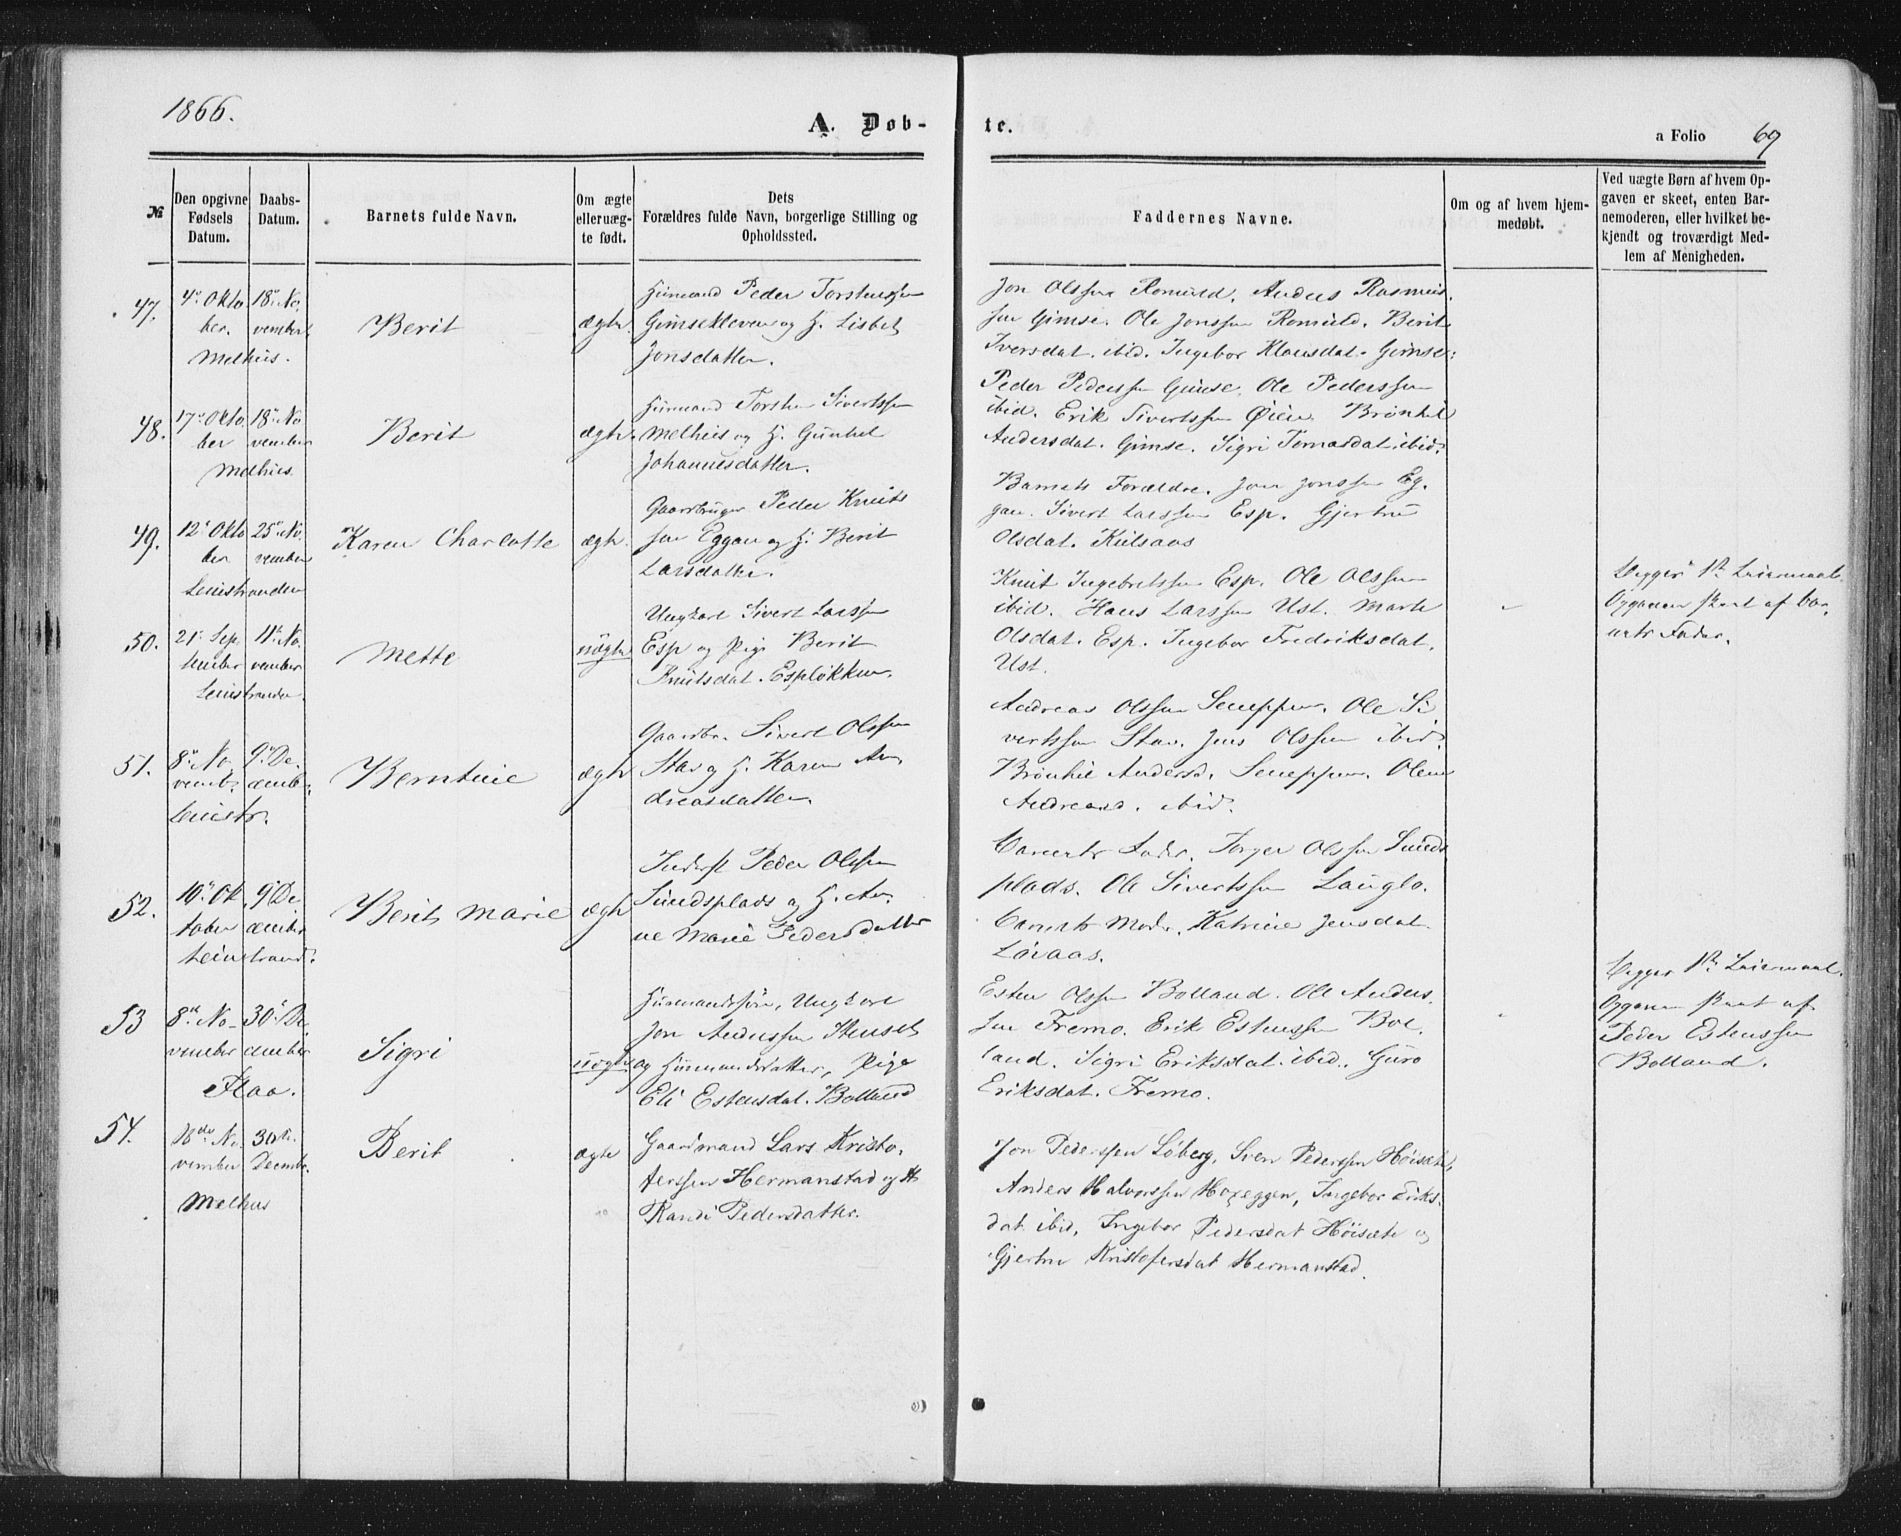 1866.
A. Døb-
te.
a Folio 69
№
Den opgivne
Fødsels
Datum.
Daabs-
Datum.
Barnets fulde Navn.
Om ægte
elleruæg-
te født.
Dets
Forældres fulde Navn, borgerlige Stilling og
Opholdssted.
Faddernes Navne.
Om og af hvem hjem-
medøbt.
Ved uægte Børn af hvem Op-
gaven er skeet, enten Bar-
nemoderen, eller hvilket be-
kjendt og troværdigt Med-
lem af Menigheden.
47.
4de Okto
ber.
18de No,
vember
Melhus.
Berit
ægte
Huusmand Peder Torstensen
Gimsekleven og H. Lisbet
Jonsdatter.
Jon Olssen Romuld. Anders Rasmus,
sen Gimse. Ole Jonssen Romuld. Berit
Iversdat. ibid. Ingebor Klausdat. Gimse.
48.
17de Okto
ber
18de No
vember
Melhus.
Berit
ægte.
Huusmand Torsten Sivertssen
Melhus og H. Gunhil
Johannesdatter.
Peder Pederssen Gimse. Ole Pederssen
ibid. Erik Sivertssen Øien. Brønhil
Andersdat. Gimse. Sigri Tomasdat. ibid.
49.
12te Okto
ber
25de No.
vember
Leinstranden
Karen Charlotte
ægte.
Gaardbruger Peder Knuts
sen Eggen og H. Berit
Larsdatter.
Barnets Forældre. Jon Jonssen Eg,
gen. Sivert Larssen Esp. Gjertru
Olsdat. Kulsaas
50.
21de Sep
tember
11te No.
vember
Leinstranden.
Mette
uægte
Ungkarl Sivert Larssen
Esp og Pige Berit
Knutsdat. Espløkken.
Knut Ingebretssen Esp. Ole Olssen
ibid. Hans Larssen Ust. Marte
Olsdat. Esp. Ingebor Fredriksdat.
Ust.
Begges 1ste Leiermaal.
Opgaven skeet af Bar,
nets Fader.
51.
8de No
vemb.
9de De,
cember.
Leinstr.
Berntine
ægte
Gaardbr. Sivert Olssen
Stav og H. Karen An,
dreasdatter.
Andreas Olssen Sneppen. Ole Si
vertssen Stav. Jens Olssen ibid.
Brønhil Andersd. Sneppen. Olene
Andreasd. ibid.
52.
10de Ok
tober
9de De
cember
Leinstrand.
Berit Marie
ægte
Inderst Peder Olssen
Sundsplads og H. An,
ne Marie Pedersdatter
Barnets Fader. Torger Olssen Sunds
plads. Ole Sivertssen Langlo.
Barnets Moder. Katrine Jensdat.
Løvaas.
53
8de No-
vember
30de De,
cember
Flaa.
Sigri
uægte
Huusmandssøn, Ungkarl
Jon Anderssen Stenset
og Huusmandsdatter, Pige
Eli Estensdat. Bolland
Esten Olssen Bolland. Ole Anders,
sen Fremo. Erik Estenssen Bol,
land. Sigri Eriksdat. ibid. Guro
Eriksdat. Fremo.
Begges 1ste Leiermaal.
Opgaven skeet af
Peder Estenssen
Bolland.
54.
18de No,
vember
30te
Decembr.
Melhus
Berit
ægte
Gaardmand Lars Kristo,
fersen Hermanstad og H
Randi Pedersdatter.
Jon Pederssen Løberg, Sven Pederssen Høisæte,
Anders Halvorssen Hoxeggen, Ingebor Eriks,
dat ibid, Ingebor Pedersdat Høisæte og
Gjertru Kristofersdat Hermanstad.